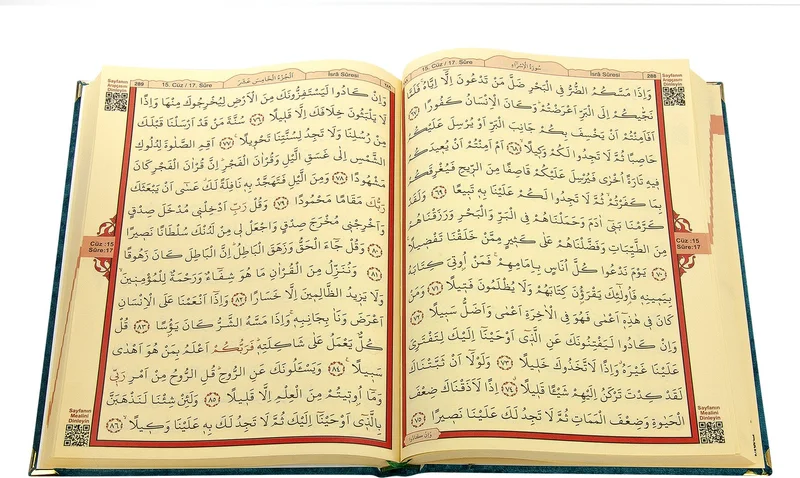 15. Cüz / 17. Sûre
سُورَةُ الْاِسْرَاءِ
İsrâ Sûresi
288
وَاِذَا مَسَّكُمُ الضُّرُّ فِي الْبَحْرِ ضَلَّ مَنْ تَدْعُونَ اِلَّٓا اِيَّاهُۚ فَلَمَّا
نَجّٰيكُمْ اِلَى الْبَرِّ اَعْرَضْتُمْۜ وَكَانَ الْاِنْسَانُ كَفُورًا ﴿٦٧﴾
اَفَاَمِنْتُمْ اَنْ يَخْسِفَ بِكُمْ جَانِبَ الْبَرِّ اَوْ يُرْسِلَ عَلَيْكُمْ
حَاصِبًا ثُمَّ لَا تَجِدُوا لَكُمْ وَكِيلًاۙ ﴿٦٨﴾ اَمْ اَمِنْتُمْ اَنْ يُعِيدَكُمْ
فِيهِ تَارَةً اُخْرٰى فَيُرْسِلَ عَلَيْكُمْ قَاصِفًا مِنَ الرِّيحِ فَيُغْرِقَكُمْ
بِمَا كَفَرْتُمْۙ ثُمَّ لَا تَجِدُوا لَكُمْ عَلَيْنَا بِهٖ تَبِيعًا ﴿٦٩﴾
كَرَّمْنَا بَنٖٓي اٰدَمَ وَحَمَلْنَاهُمْ فِي الْبَرِّ وَالْبَحْرِ وَرَزَقْنَاهُمْ
مِنَ الطَّيِّبَاتِ وَفَضَّلْنَاهُمْ عَلٰى كَثِيرٍ مِمَّنْ خَلَقْنَا تَفْضِيلًا
﴿٧٠﴾ يَوْمَ نَدْعُوا كُلَّ اُنَاسٍ بِاِمَامِهِمْۚ فَمَنْ اُو۫تِيَ كِتَابَهُ
بِيَمِينِهٖ فَاُو۬لٰٓئِكَ يَقْرَؤُ۫نَ كِتَابَهُمْ وَلَا يُظْلَمُونَ فَتِيلًا ﴿٧١﴾ وَمَنْ
كَانَ فِي هٰذِهٖٓ اَعْمٰى فَهُوَ فِي الْاٰخِرَةِ اَعْمٰى وَاَضَلُّ سَبِيلًا ﴿٧٢﴾
وَاِنْ كَادُوا لَيَفْتِنُونَكَ عَنِ الَّذٖٓي اَوْحَيْنَٓا اِلَيْكَ لِتَفْتَرِيَ
عَلَيْنَا غَيْرَهُۗ وَاِذًا لَاتَّخَذُوكَ خَلِيلًا ﴿٧٣﴾ وَلَوْلَٓا اَنْ ثَبَّتْنَاكَ
لَقَدْ كِدْتَ تَرْكَنُ اِلَيْهِمْ شَيْـًٔا قَلِيلًاۙ ﴿٧٤﴾ اِذًا لَاَذَقْنَاكَ ضِعْفَ
الْحَيٰوةِ وَضِعْفَ الْمَمَاتِ ثُمَّ لَا تَجِدُ لَكَ عَلَيْنَا نَصِيرًا ﴿٧٥﴾
وَاِنْ كَادُوا
Sayfanın
Arapçasını
Dinleyin
Cüz :15
Sûre:17
Sayfanın
Mealini
Dinleyin
289
15. Cüz / 17. Sûre
اَلْجُزْءُ الْخَامِسَ عَشَرَ
İsrâ Sûresi
وَاِنْ كَادُوا لَيَسْتَفِزُّونَكَ مِنَ الْاَرْضِ لِيُخْرِجُوكَ مِنْهَا وَاِذًا
لَا يَلْبَثُونَ خِلَافَكَ اِلَّا قَلِيلًا ﴿٧٦﴾ سُنَّةَ مَنْ قَدْ اَرْسَلْنَا قَبْلَكَ
مِنْ رُسُلِنَا وَلَا تَجِدُ لِسُنَّتِنَا تَحْوِيلًا ﴿٧٧﴾ اَقِمِ الصَّلٰوةَ لِدُلُوكِ
الشَّمْسِ اِلٰى غَسَقِ الَّيْلِ وَقُرْاٰنَ الْفَجْرِۜ اِنَّ قُرْاٰنَ الْفَجْرِ كَانَ
مَشْهُودًا ﴿٧٨﴾ وَمِنَ الَّيْلِ فَتَهَجَّدْ بِهٖ نَافِلَةً لَكَۗ عَسٰٓى اَنْ يَبْعَثَكَ
رَبُّكَ مَقَامًا مَحْمُودًا ﴿٧٩﴾ وَقُلْ رَبِّ اَدْخِلْنٖي مُدْخَلَ صِدْقٍ
وَاَخْرِجْنٖي مُخْرَجَ صِدْقٍ وَاجْعَلْ لٖي مِنْ لَدُنْكَ سُلْطَانًا نَصِيرًا
﴿٨٠﴾ وَقُلْ جَٓاءَ الْحَقُّ وَزَهَقَ الْبَاطِلُۜ اِنَّ الْبَاطِلَ كَانَ زَهُوقًا
﴿٨١﴾ وَنُنَزِّلُ مِنَ الْقُرْاٰنِ مَا هُوَ شِفَٓاءٌ وَرَحْمَةٌ لِلْمُؤْمِنِينَۙ
وَلَا يَزِيدُ الظَّالِمِينَ اِلَّا خَسَارًا ﴿٨٢﴾ وَاِذَٓا اَنْعَمْنَا عَلَى الْاِنْسَانِ
اَعْرَضَ وَنَاٰ بِجَانِبِهٖۚ وَاِذَا مَسَّهُ الشَّرُّ كَانَ يَؤُ۫سًا ﴿٨٣﴾ قُلْ
كُلٌّ يَعْمَلُ عَلٰى شَاكِلَتِهٖۜ فَرَبُّكُمْ اَعْلَمُ بِمَنْ هُوَ اَهْدٰى
سَبِيلًا ﴿٨٤﴾ وَيَسْـَٔلُونَكَ عَنِ الرُّوحِۜ قُلِ الرُّوحُ مِنْ اَمْرِ رَبّٖي
وَمَٓا اُو۫تِيتُمْ مِنَ الْعِلْمِ اِلَّا قَلِيلًا ﴿٨٥﴾ وَلَئِنْ شِئْنَا لَنَذْهَبَنَّ
بِالَّذٖٓي اَوْحَيْنَٓا اِلَيْكَ ثُمَّ لَا تَجِدُ لَكَ بِهٖ عَلَيْنَا وَكِيلًاۙ ﴿٨٦﴾
Sayfanın
Arapçasını
Dinleyin
Cüz :15
Sûre:17
Sayfanın
Mealini
Dinleyin